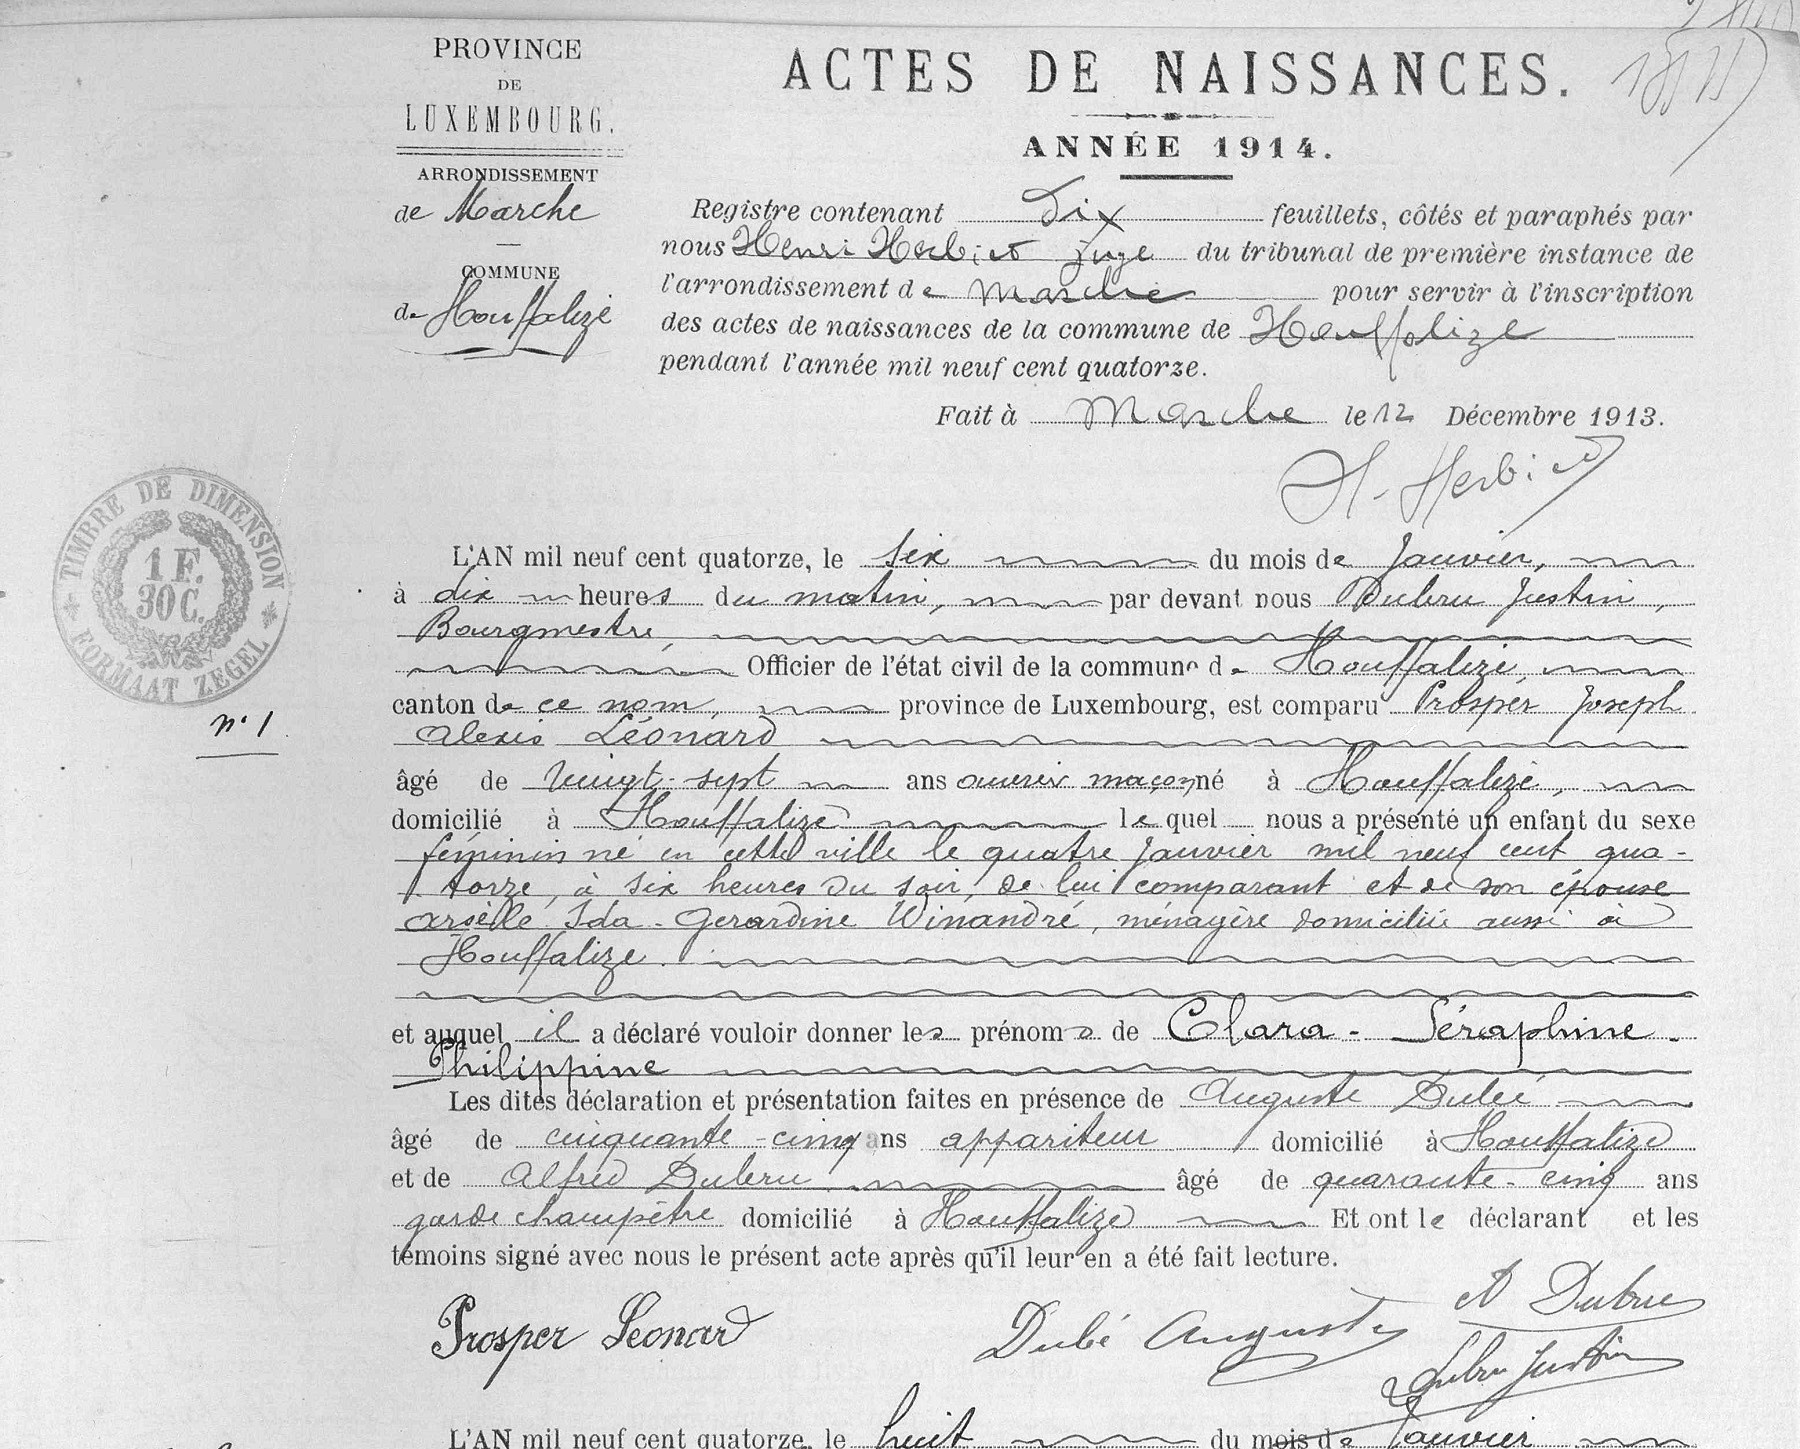 PROVINCE
DE
LUXEMBOURG.
ARRONDISSEMENT
de Marche
COMMUNE
de Houffalize
ACTES DE NAISSANCES.
ANNÉE 1914.
Registre contenant Dix feuillets, côtés et paraphés par
nous Henri Herbiet Juge du tribunal de première instance de
l'arrondissement de Marche pour servir à l'inscription
des actes de naissances de la commune de Houffalize
pendant l'année mil neuf cent quatorze.
Fait à Marche le 12 Décembre 1913.
H. Herbiet
TIMBRE DE DIMENSION
1 F.
30 C.
FORMAAT ZEGEL
n° 1
L'AN mil neuf cent quatorze, le six du mois de Janvier,
à dix heures du matin, par devant nous Dubru Justin,
Bourgmestre,
Officier de l'état civil de la commune de Houffalize,
canton de ce nom, province de Luxembourg, est comparu Prosper Joseph
Alexis Léonard
âgé de vingt-sept ans ouvrier maçon né à Houffalize,
domicilié à Houffalize lequel nous a présenté un enfant du sexe
féminin né en cette ville le quatre Janvier mil neuf cent qua-
torze, à six heures du soir, de lui comparant et de son épouse
Arsèlle Ida-Gerardine Winandré, ménagère domiciliée aussi à
Houffalize.
et auquel il a déclaré vouloir donner les prénoms de Clara-Séraphine-
Philippine
Les dites déclaration et présentation faites en présence de Auguste Dubé
âgé de cinquante-cinq ans appariteur domicilié à Houffalize
et de Alfred Dubru âgé de quarante-cinq ans
garde champêtre domicilié à Houffalize Et ont le déclarant et les
témoins signé avec nous le présent acte après qu'il leur en a été fait lecture.
Prosper Leonard
Dubé Auguste
A Dubru
Dubru Justin
L'AN mil neuf cent quatorze, le huit du mois de Janvier